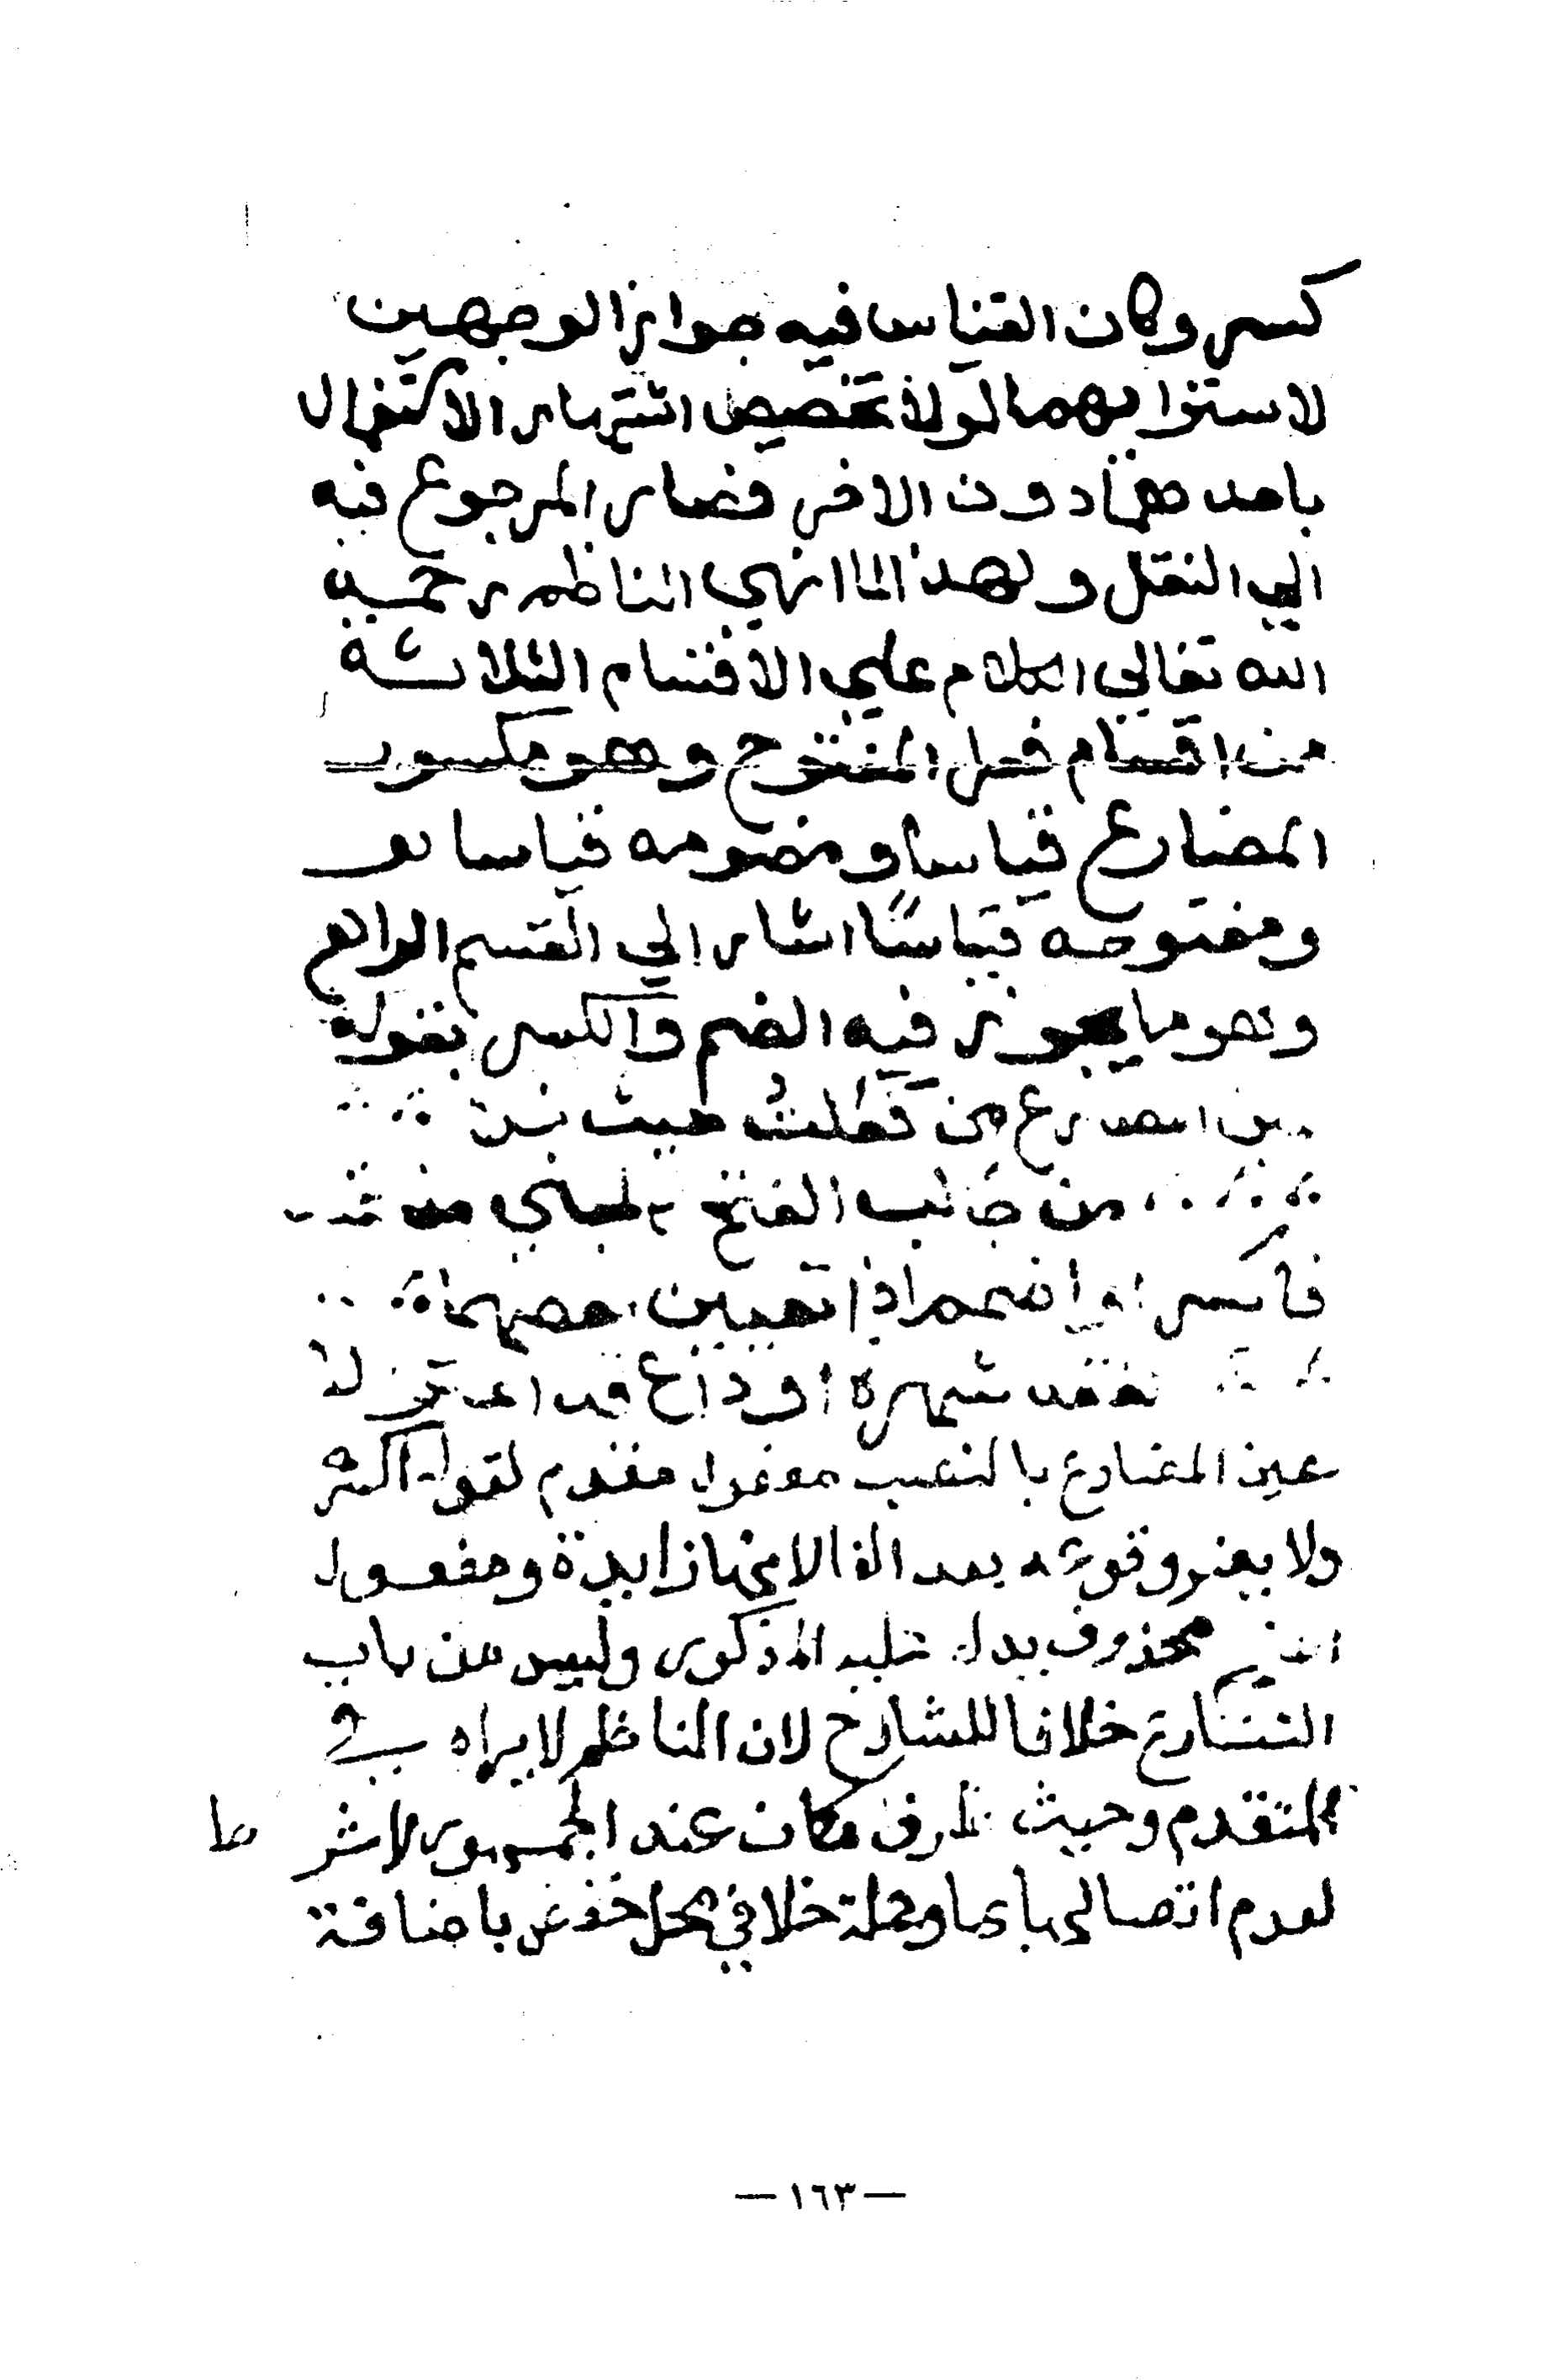 كسر وكان القياس فيه جواز الوجهين
لاستوايهما لولا تخصيص اشتهار الاستعمال
باحدهما دون الاخر فصار المرجوع فيه
الي النقل ولهذا لما انهي الناظم رحمه
الله تعالي الكلام علي الاقسام الثلاثة
من اقسام فعل المفتوح وهو مكسور
المضارع قياسا ومضمومه قياسا
ومفتوحه قياسًا اشار الي القسم الرابع
وهو ما يجوز فيه الضم والكسر بقوله
عين المضارع من فَعَلْتُ حيث خلا
من جالب الفتح كالمبني من عتلا
فاكسر او اضمم اذا تعيين بعضهما
لفقد شهرة او داع قد اعتزلا
عين المضارع بالنصب مفعول مقدم لقوله اكسر
ولا يضر وقوعه بعد الفا لانها زايدة ومفعول
اضمم محذوف يدل عليه المذكور وليس من باب
التنازع خلافا للشارح لان الناظم لا يراه في
المتقدم وحيث ظرف مكان عند الجمهور لا شرط
لعدم اتصالها بما وجملة خلا في محل خفض باضافة
— ١٦٣ —